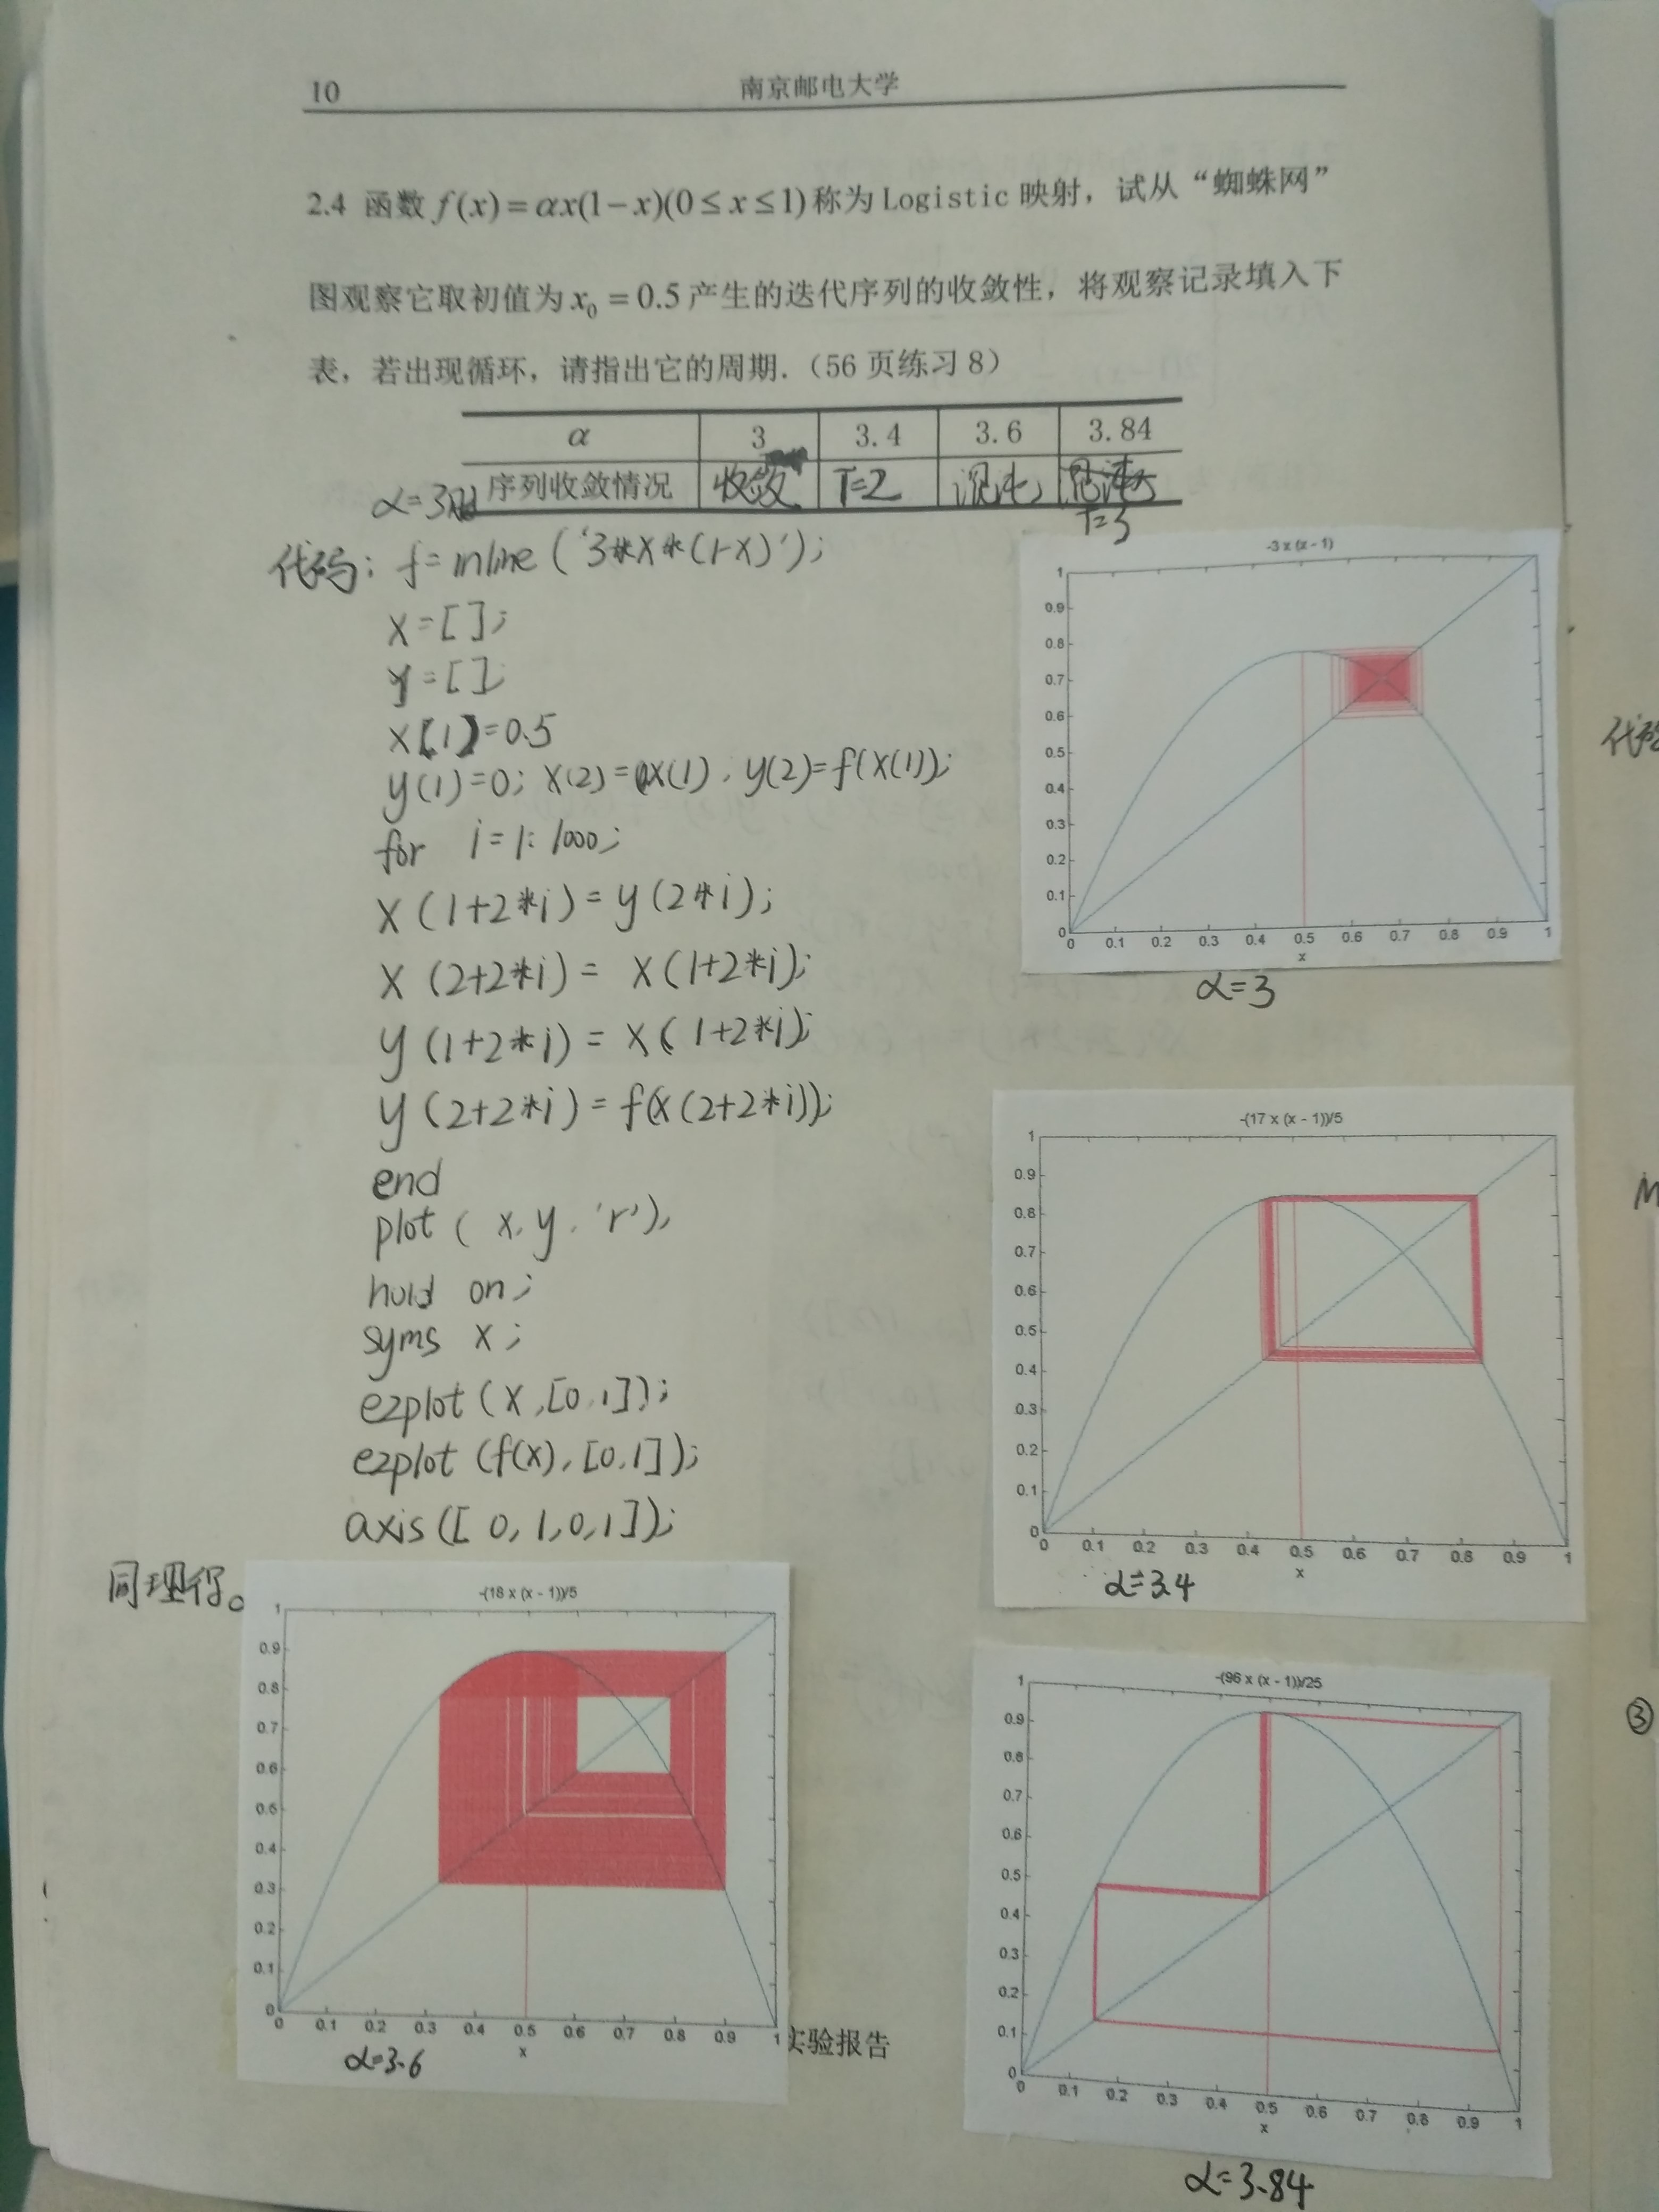 10
南京邮电大学
2.4 函数 f(x)=αx(1−x)(0≤x≤1)称为Logistic 映射，试从“蜘蛛网”
图观察它取初值为 x₀=0.5 产生的迭代序列的收敛性，将观察记录填入下
表，若出现循环，请指出它的周期.（56 页练习 8）
α 3 3.4 3.6 3.84
序列收敛情况 收敛 T=2 混沌 T=3
α=3时
代码: f=inline('3*x*(1-x)');
x=[];
y=[];
x(1)=0.5
y(1)=0; x(2)=x(1), y(2)=f(x(1));
for i=1:1000;
x(1+2*i)=y(2*i);
x(2+2*i)= x(1+2*i);
y(1+2*i)= x(1+2*i);
y(2+2*i)=f(x(2+2*i));
end
plot(x,y,'r');
hold on;
syms x;
ezplot(x,[0,1]);
ezplot(f(x),[0,1]);
axis([0,1,0,1]);
同理得。
-3 x (x - 1)
1
0.9
0.8
0.7
0.6
0.5
0.4
0.3
0.2
0.1
0
0 0.1 0.2 0.3 0.4 0.5 0.6 0.7 0.8 0.9 1
x
α=3
-(17 x (x - 1))/5
1
0.9
0.8
0.7
0.6
0.5
0.4
0.3
0.2
0.1
0
0 0.1 0.2 0.3 0.4 0.5 0.6 0.7 0.8 0.9 1
x
α=3.4
-(18 x (x - 1))/5
1
0.9
0.8
0.7
0.6
0.5
0.4
0.3
0.2
0.1
0
0 0.1 0.2 0.3 0.4 0.5 0.6 0.7 0.8 0.9 1
x
α=3.6
-(96 x (x - 1))/25
1
0.9
0.8
0.7
0.6
0.5
0.4
0.3
0.2
0.1
0
0 0.1 0.2 0.3 0.4 0.5 0.6 0.7 0.8 0.9 1
x
α=3.84
实验报告
代码
③